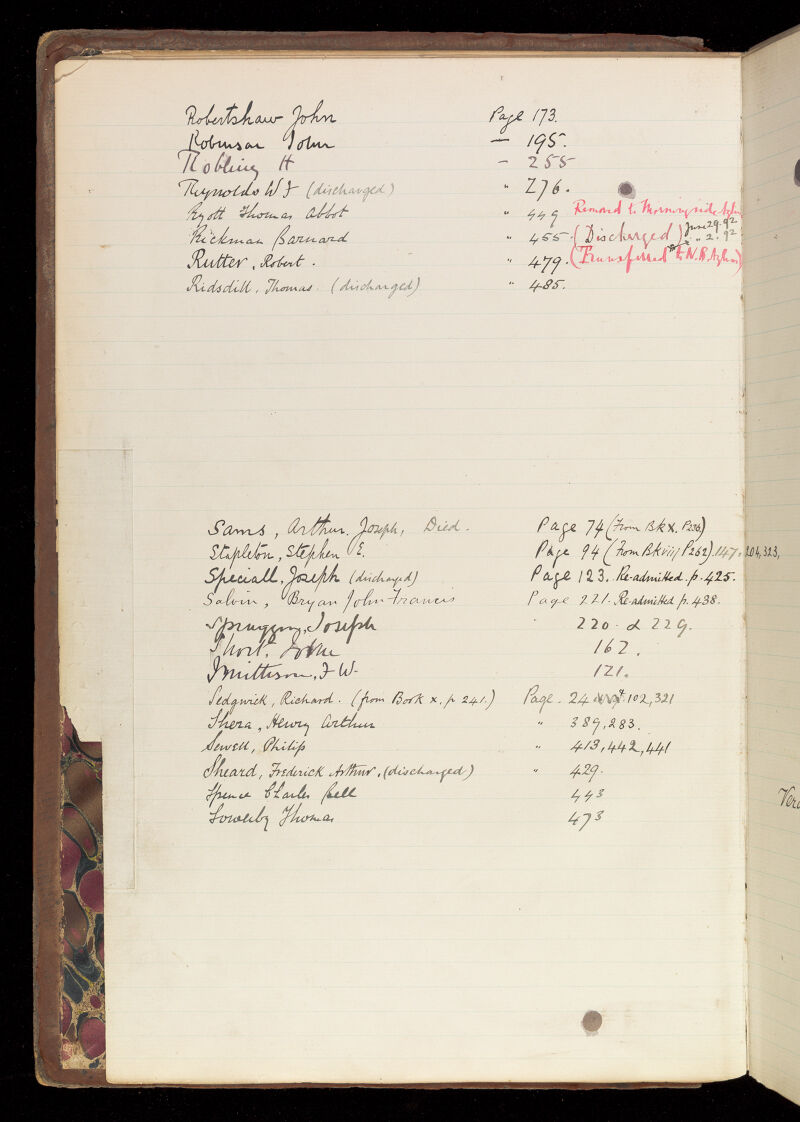 Robertshaw John Page 173.
Robinson John — 195.
Robling H — 255
Reynolds W J (discharged) " 276.
Ryott Thomas Abbot " 449 Removed to Morningside Asylum June 29. 92
Rickman Barnard " 455. (Discharged) " 2. 92
Rutter, Robert. " 479. (Transferred to N.R. Asylum)
Ridsdill, Thomas. (discharged) " 485.
Sams, Arthur. Joseph, Died. Page 74 (From Bk X. P236)
Stapleton, Stephen E. Page 94 (From Bk viij P262). 147, 204, 323,
Speciall, Joseph (discharged) Page 123. Re-admitted. p. 425.
Salvin, Bryan John Francis Page 221. Re-admitted p. 438.
Spruggin, Joseph " 220. & 229.
Short. John 162.
Smittison, J W. 121.
Sedgwick, Richard. (from Book x., p 241.) Page. 24 102, 321
Shera, Henry Arthur " 389, 283.
Sewell, Philip " 413, 442, 441
Sheard, Frederick Arthur, (discharged) " 429.
Spence Charles Bell 443
Sowerby Thomas 473